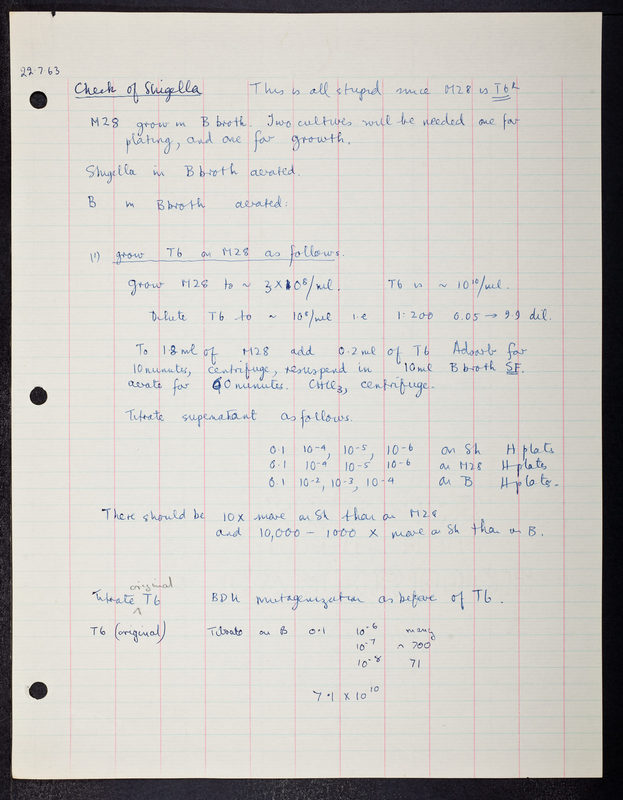 22.7.63
Check of Shigella This is all stupid since M28 is T6R
M28 grow in B broth. Two cultures will be needed one for
plating, and one for growth.
Shigella in B broth aerated.
B in B broth aerated.
(1) grow T6 on M28 as follows.
Grow M28 to ~ 3 × 10⁸/ml. T6 is ~ 10¹⁰/ml.
Dilute T6 to ~ 10⁸/ml i.e 1:200 0.05 → 9.9 dil.
To 1.8 ml of M28 add 0.2 ml of T6 Adsorb for
10 minutes, centrifuge, resuspend in 10 ml B broth SF.
aerate for 60 minutes. CHCl₃, centrifuge.
Titrate supernatant as follows.
0.1 10⁻⁴, 10⁻⁵, 10⁻⁶ on Sh H plates
0.1 10⁻⁴ 10⁻⁵ 10⁻⁶ on M28 H plates
0.1 10⁻², 10⁻³, 10⁻⁴ on B H plates.
There should be 10x more on Sh than on M28
and 10,000 – 1000 x more on Sh than on B.
original
Titrate T6 BDU mutagenization as before of T6.
T6 (original) Titrate on B 0.1 10⁻⁶ many
10⁻⁷ ~ 700
10⁻⁸ 71
7.1 × 10¹⁰